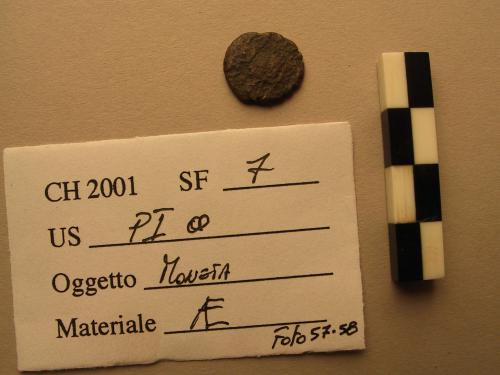 CH 2001 SF 7
US PI ∞
Oggetto MONETA
Materiale Æ
FOTO 57-58